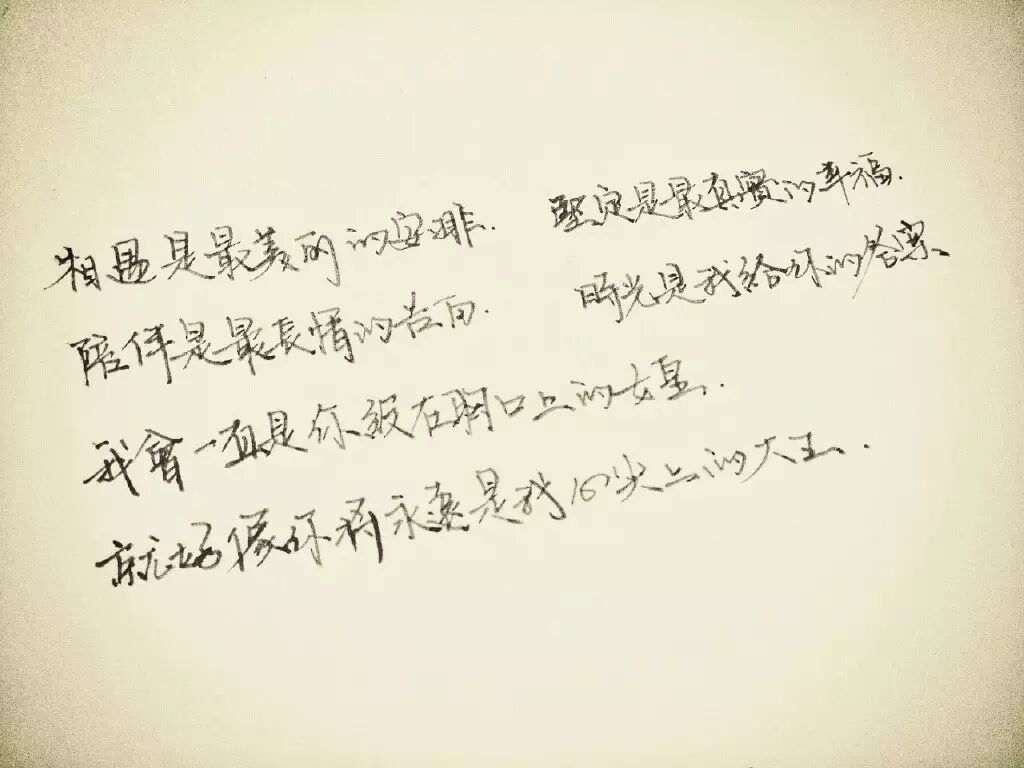 相遇是最美麗的安排. 堅定是最真實的幸福.
陪伴是最長情的告白. 時光是我給你的答案.
我會一直是你紋在胸口上的女皇.
就好像你將永遠是我心尖上的大王.